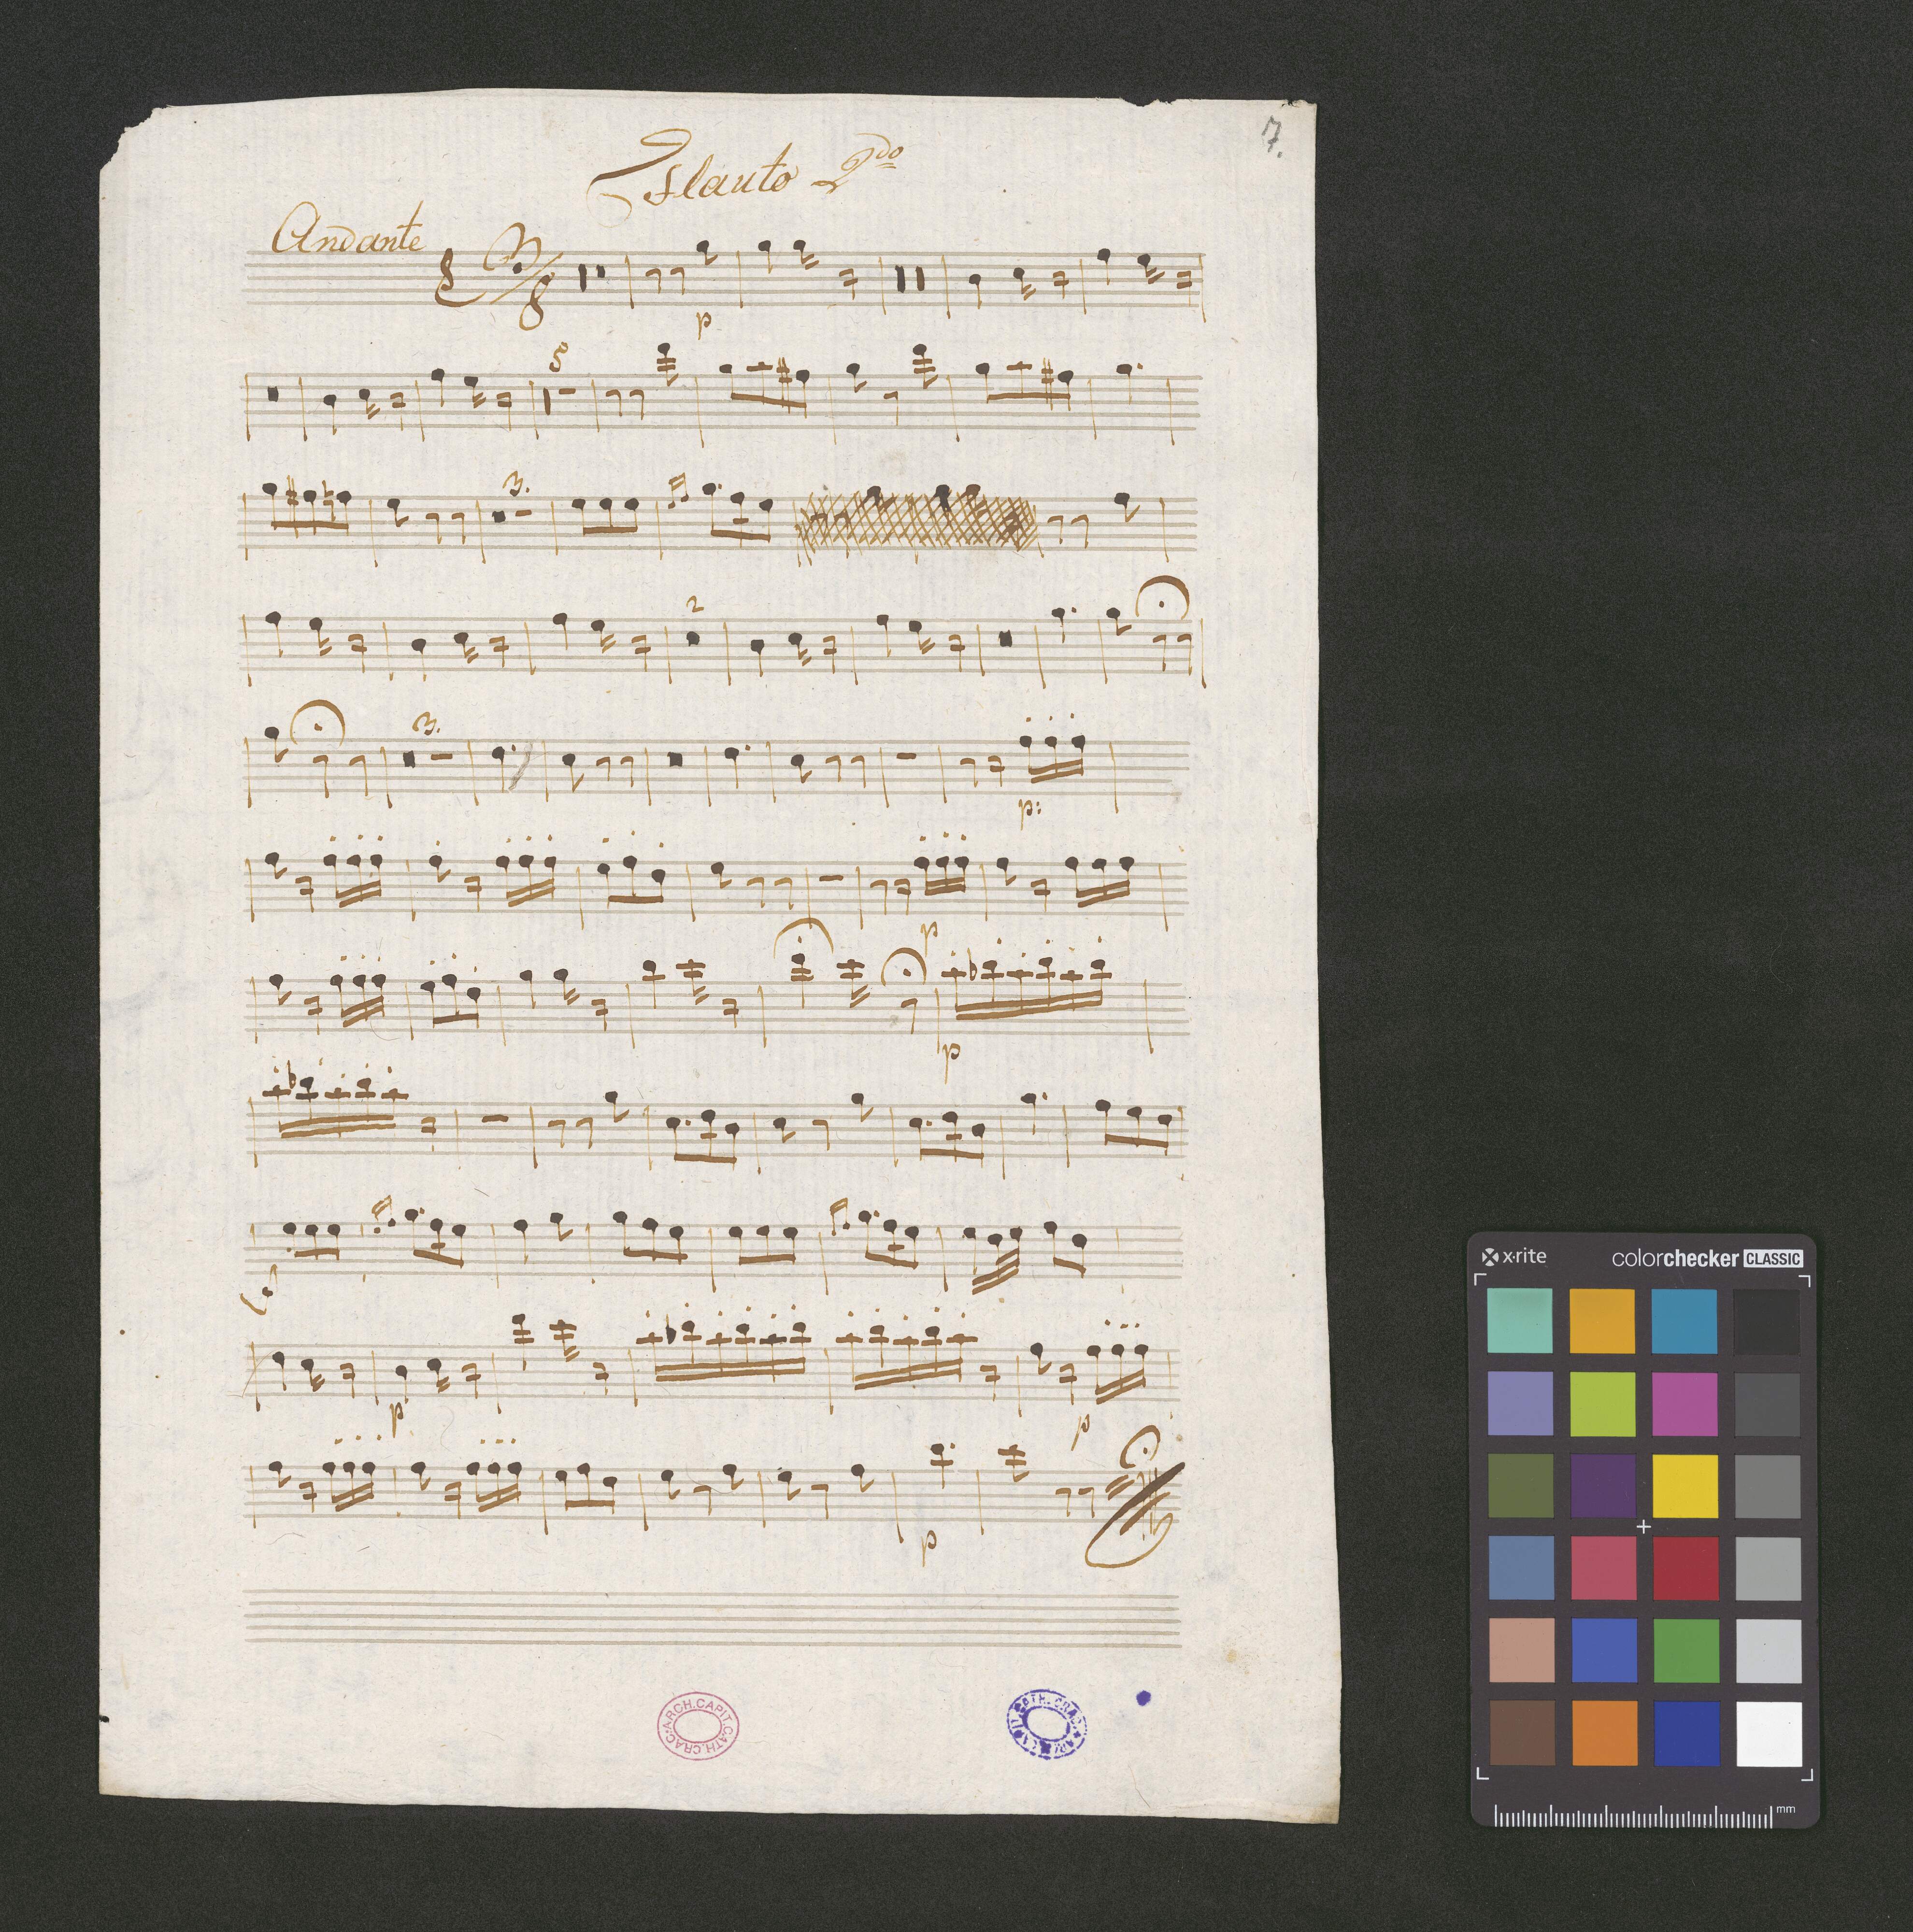 7.
Flauto 2do
Andante
3/8
p
5
3.
2
3.
p:
p
p
p
p
p
ARCH.CAPIT.CATH.CRAC.
x·rite colorchecker CLASSIC
mm